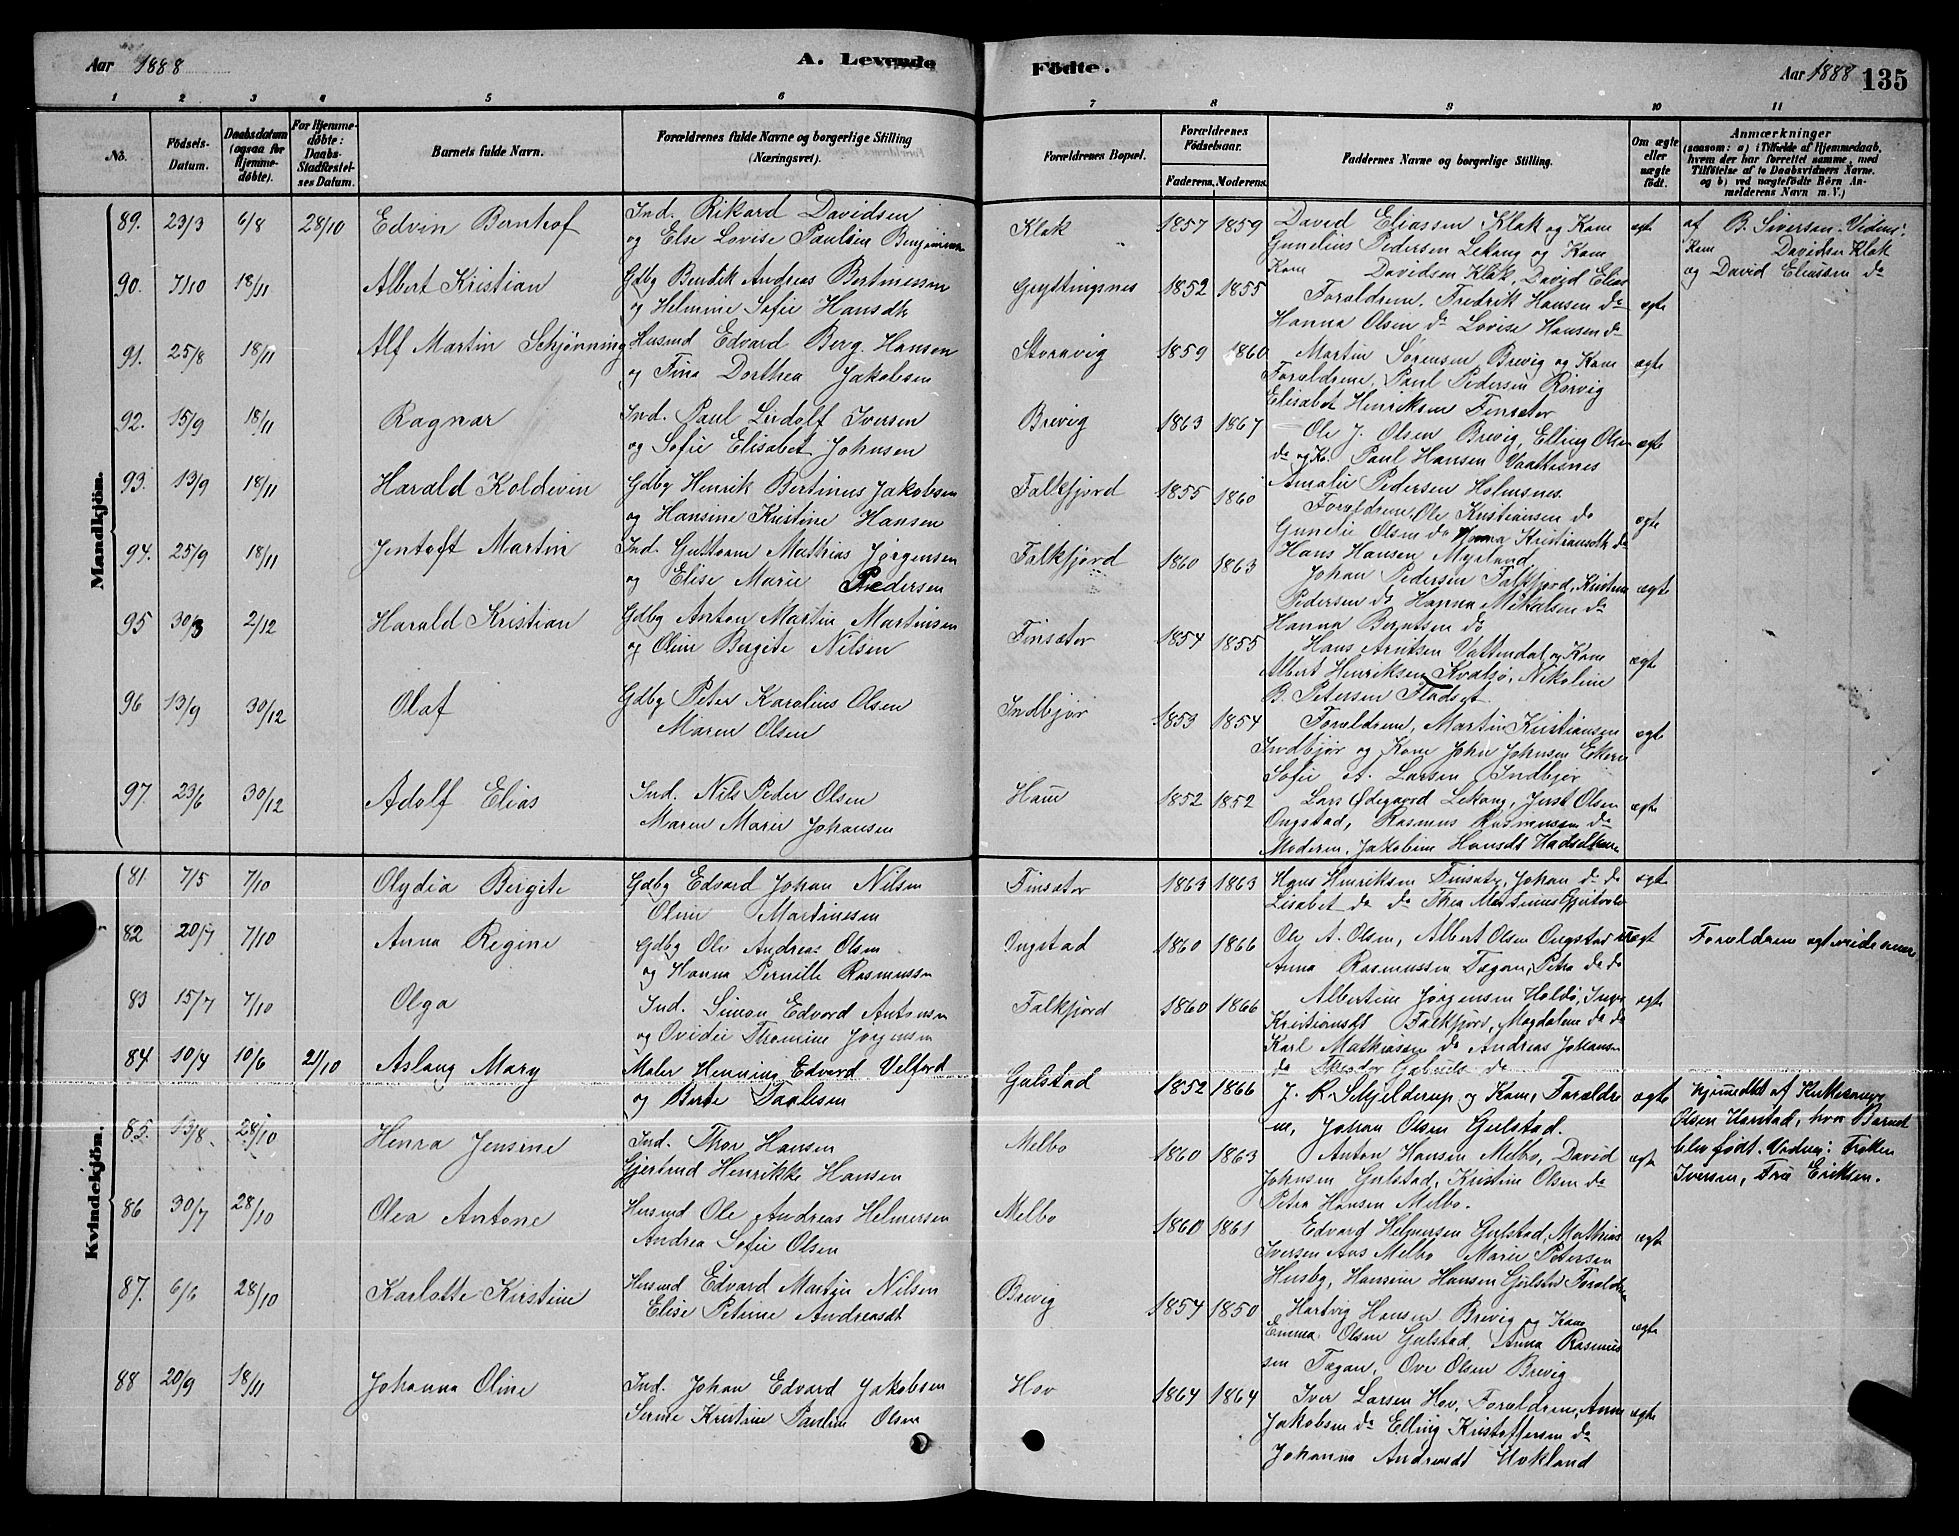 Aar 1888
A. Levende
Födte.
Aar 1888
135
1 2 3 4 5 6 7 8 9 10 11
No.
Födsels-Datum.
Daabsdatum (ogsaa for Hjemme-döbte).
For Hjemme-döbte: Daabs-Stadfæstel-ses Datum.
Barnets fulde Navn.
Forældrenes fulde Navne og borgerlige Stilling (Næringsvei).
Forældrenes Bopæl.
Forældrenes Födselsaar.
Faderens. Moderens.
Faddernes Navne og borgerlige Stilling.
Om ægte eller uægte födt.
Anmærkninger
(saasom: a) i Tilfælde af Hjemmedaab, hvem der har forrettet samme, med Tilföielse af to Daabsvidners Navne. og b) ved uægtefödte Börn An-melderens Navn m. V.)
Mandkjön.
89. 23/3 6/8 28/10 Edvin Bonhof Ind. Rikard Davidsen
og Else Lovise Paulsen Klak 1857 1859 David Eliassen Klak og Kone
Gunelius Pedersen Lekang og Kone
Kone Davidsen Klak, David Elias ægt
af B. Siversen. Vidne:
Kone Davidsen Klak
og David Eliassen do
90. 7/10 18/11 Albert Kristian Gdbg Bendik Andreas Bertinussen
og Helmine Sofie Hansdtr 1852 1855 Forældrene. Fredrik Hansen do
Hanna Olsen do Lovise Hansen do ægte
91. 25/8 18/11 Alf Martin Schjønning Husmd Edvard Berg Hansen
og Fina Dorthea Jakobsen Storavig 1859 1860 Martin Sørensen Brevig og Kone
Forældrene, Paul Pedersen Rørvig
Elisabet Henriksen Finsæter ægte
92. 15/9 18/11 Ragnar Ind. Paul Lerdolf Iversen
og Sofie Elisabet Johnsen Brevig 1863 1867 Ole J. Olsen Brevig, Elling Olsen
do og K. Paul Hansen
Amalie Pedersen Holmsnes. ægte
93. 13/9 18/11 Harald Koldevin Gdbg Henrik Bertinus Jakobsen
og Hansine Kristine Hansen Falkfjord 1855 1860 Forældrene. Ole Kristiansen do
Gunelie Olsen do Kristiansdtr do
Hans Hansen Myrland ægte
94. 25/9 18/11 Jentoft Martin Ind. Guttorm Mathias Jørgensen
og Elise Marie Pedersen Falkfjord 1860 1863 Johan Pedersen Falkfjord, Kristine
Pedersen do Hanna Mikalsen do
Hanna Berntsen do ægte
95 30/3 2/12 Harald Kristian Gdbg Anton Martin Martinsen
og Oline Bergite Nilsen Finsæter 1854 1855 Hans Arntsen Vattendal og Kone
Albert Henriksen Kvalsø, Nikoline
B. Petersen Fladset ægte
96 13/9 30/12 Olaf Gdbg Peter Karolius Olsen
Maren Olsen Indbjør 1853 1854 Forældrene, Martin Kristiansen
Indbjør og Kone John Johnsen
Sofie A. Larsen Indbjør ægte
97. 23/6 30/12 Adolf Elias Ind. Nils Peder Olsen
Maren Marie Johansen Ham 1852 1852 Lars Ødegaard Lekang, Jerst Olsen
Ongstad, Rasmus Rasmussen do
Moderen, Jakobine Hansdt ægte
Kvindekjön.
81 7/5 7/10 Olydia Bergite Gdbg Edvard Johan Nilsen
Oline Martinussen Finsæter 1863 1863 Hans Henriksen Finsæter, Johan do do
Lisabet do do Thea Martinus ægt
82 20/7 7/10 Anna Regine Gdbg Ole Andreas Olsen
og Hanna Pernille Rasmussen Ongstad 1860 1866 Ole A. Olsen, Albert Olsen Ongstad
Anna Rasmussen Tægan, Petra do do ægt Forældrene
83 15/7 7/10 Olga Ind. Simon Edvard Antonsen
og Ovidie Thomine Jørgensen Falkfjord 1860 1866 Albertine Jørgensen Holdø, Inger
Kristiansdt Falkfjord, Magdalene do do
Karl Mathiassen do Andreas Johansen
do Theodor Gabriels. do ægt
84 10/4 10/6 21/10 Aslaug Mary Maler Henning Edvard Velford
og Berte Paulsen Gulstad 1852 1866 J. R. Schjelderup og Kone, Forældre
ne, Johan Olsen Gulstad. ægte
Hjemmedbt af Kirkesanger
Olsen Harstad, hvor Barnet
blev født. Vidne: Frøken
Iversen, Fru Eriksen.
85. 13/8. 28/10 Henra Jensine Ind. Thor Hansen
Gjertrud Henrikke Hansen Melbo 1860 1863 Anton Hansen Melbo, David
Johnsen Gulstad, Kristine Olsen do
Petra Hansen Melbo. ægt
86 30/7 28/10 Olea Antone Husmd Ole Andreas Helmersen
Andrea Sofie Olsen Melbo 1860 1861 Edvard Helmersen Gulstad, Mathias
Iversen Aas Melbo Marie Petersen
Husby, Hansine Hansen Gulstad Forældre ægt
87. 6/6 28/10 Karlotte Kirstine Husmd Edvard Martin Nilsen
Elise Petrine Andreasdt Brevig 1854 1850 Hartvig Hansen Brevig og Kone
Emma Olsen Gulstad, Anna Rasmus
sen Tægan, Ove Olsen Brevig ægt
88 20/9 18/11 Johanna Oline Ind. Johan Edvard Jakobsen
Serine Kristine Pauline Olsen Hov 1864 1864 Iver Larsen Hov, Forældrene, Anne
Jakobsen do Elling Kristoffersen do
Johanna Andreasdt Hokland ægte